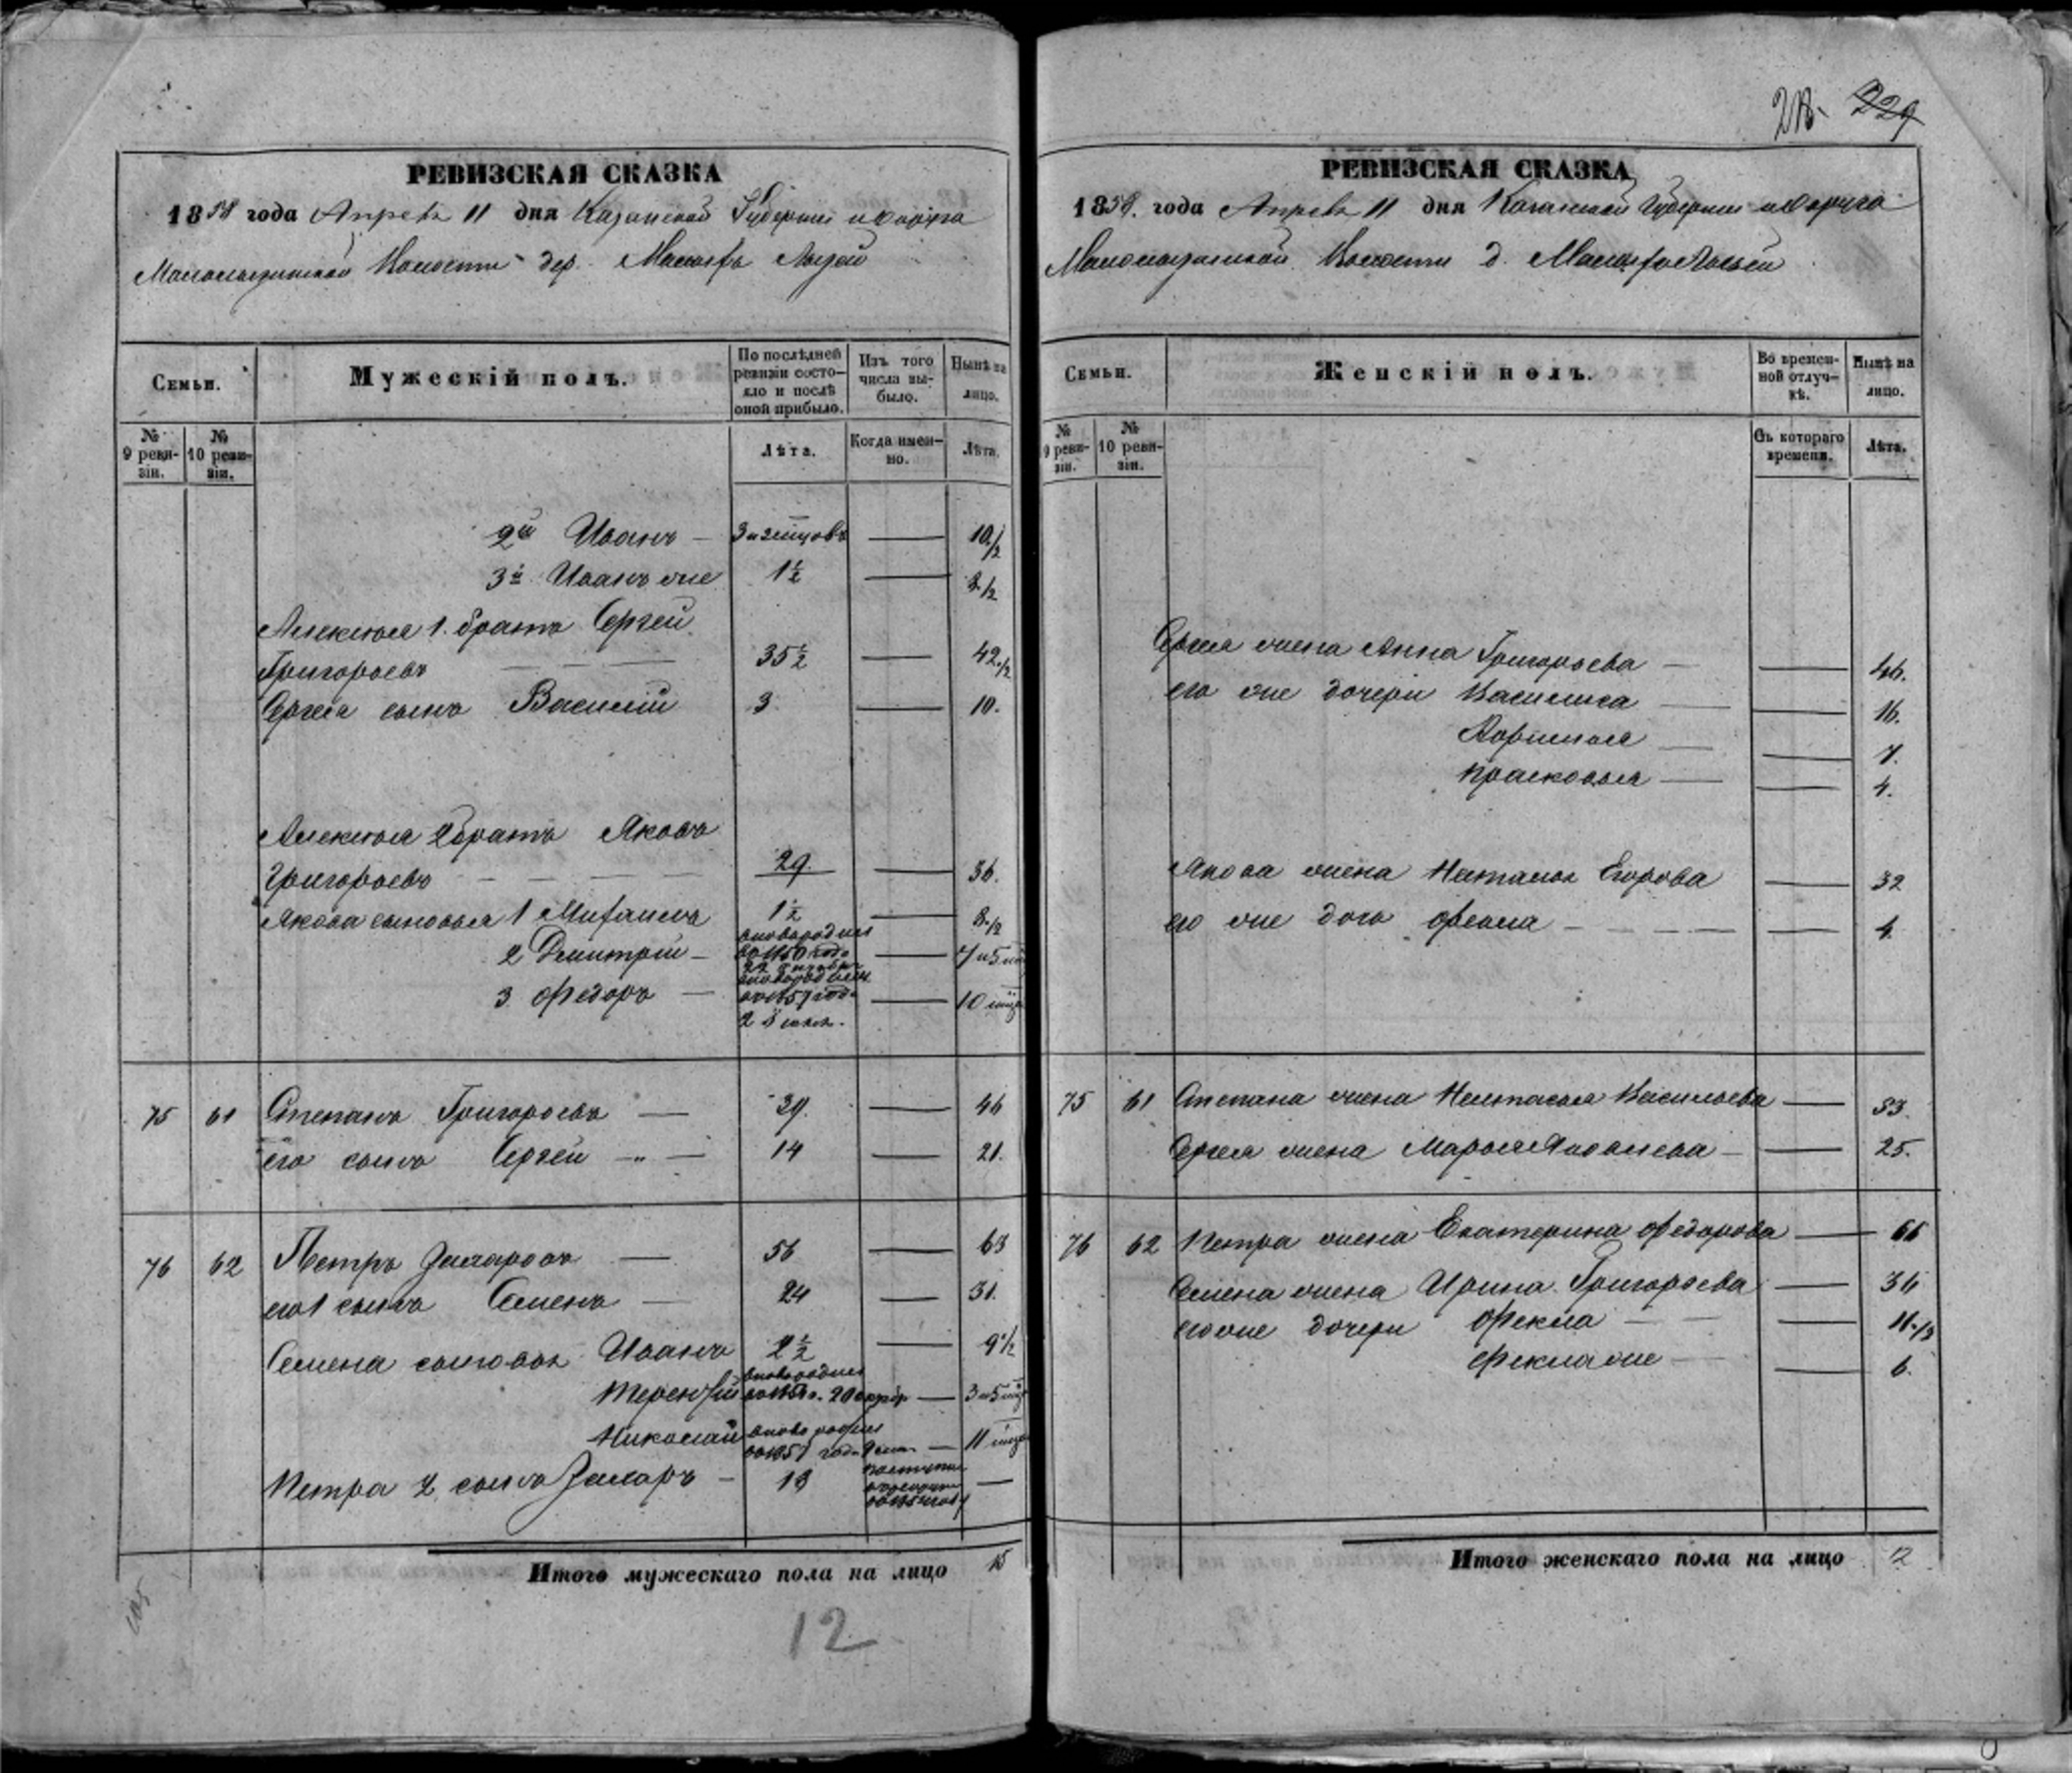 229
РЕВИЗСКАЯ СКАЗКА
1858 года Апреля 11 дня Казанской Губернии и округа
Волости дер. Малыхъ
Семьи.
Мужескій полъ.
По послѣдней ревизіи состояло и послѣ оной прибыло.
Изъ того числа выбыло.
Нынѣ на лицо.
№ 9 ревизіи.
№ 10 ревизіи.
Лѣта.
Когда именно.
Лѣта.
2й Иванъ — — 10 1/2
3й Иванъ же 1 1/2 — 8 1/2
Алексѣя 1. братъ Сергей
Григорьевъ — — — 35 1/2 — 42 1/2
Сергея сынъ Василій 3 — 10.
Алексѣя 2 братъ Яковъ
Григорьевъ — — — — 29. — 36.
Якова сыновья 1 Михаилъ 1 1/2 — 8 1/2
2 Дмитрій — — 7 и 5
3 Федоръ — — 10
75 61 Степанъ Григорьевъ — 39. — 46
его сынъ Сергей — „ — 14 — 21.
76 62 Петръ Захаровъ — 56 — 63
его 1 сынъ Семенъ — 24 — 31.
Семена сыновья Иванъ 2 1/2 — 9 1/2
Терентій — 3 и 5
Николай — 11
Петра 2 сынъ Захаръ — —
Итого мужескаго пола на лицо 15
12
105
РЕВИЗСКАЯ СКАЗКА
1858. года Апреля 11 дня Казанской Губернии и округа
Волости д. Малыхъ
Семьи.
Женскій полъ.
Во временной отлучкѣ.
Нынѣ на лицо.
№ 9 ревизіи.
№ 10 ревизіи.
Съ котораго времени.
Лѣта.
Сергея жена Анна Григорьева — — 46.
его же дочери Василиса — — 16.
— — 7.
Прасковья — — 4.
Якова жена Наталья Егорова — 32
его же дочь Фекла — — — — — 4.
75 61 Степана жена Настасья Васильева — 53.
Сергея жена Марья Яковлева — — 25.
76 62 Петра жена Екатерина Федорова — 66
Семена жена Ирина Григорьева — 36
его же дочери Фекла — — — 11 1/2
Фекла же — — 6.
Итого женскаго пола на лицо 12